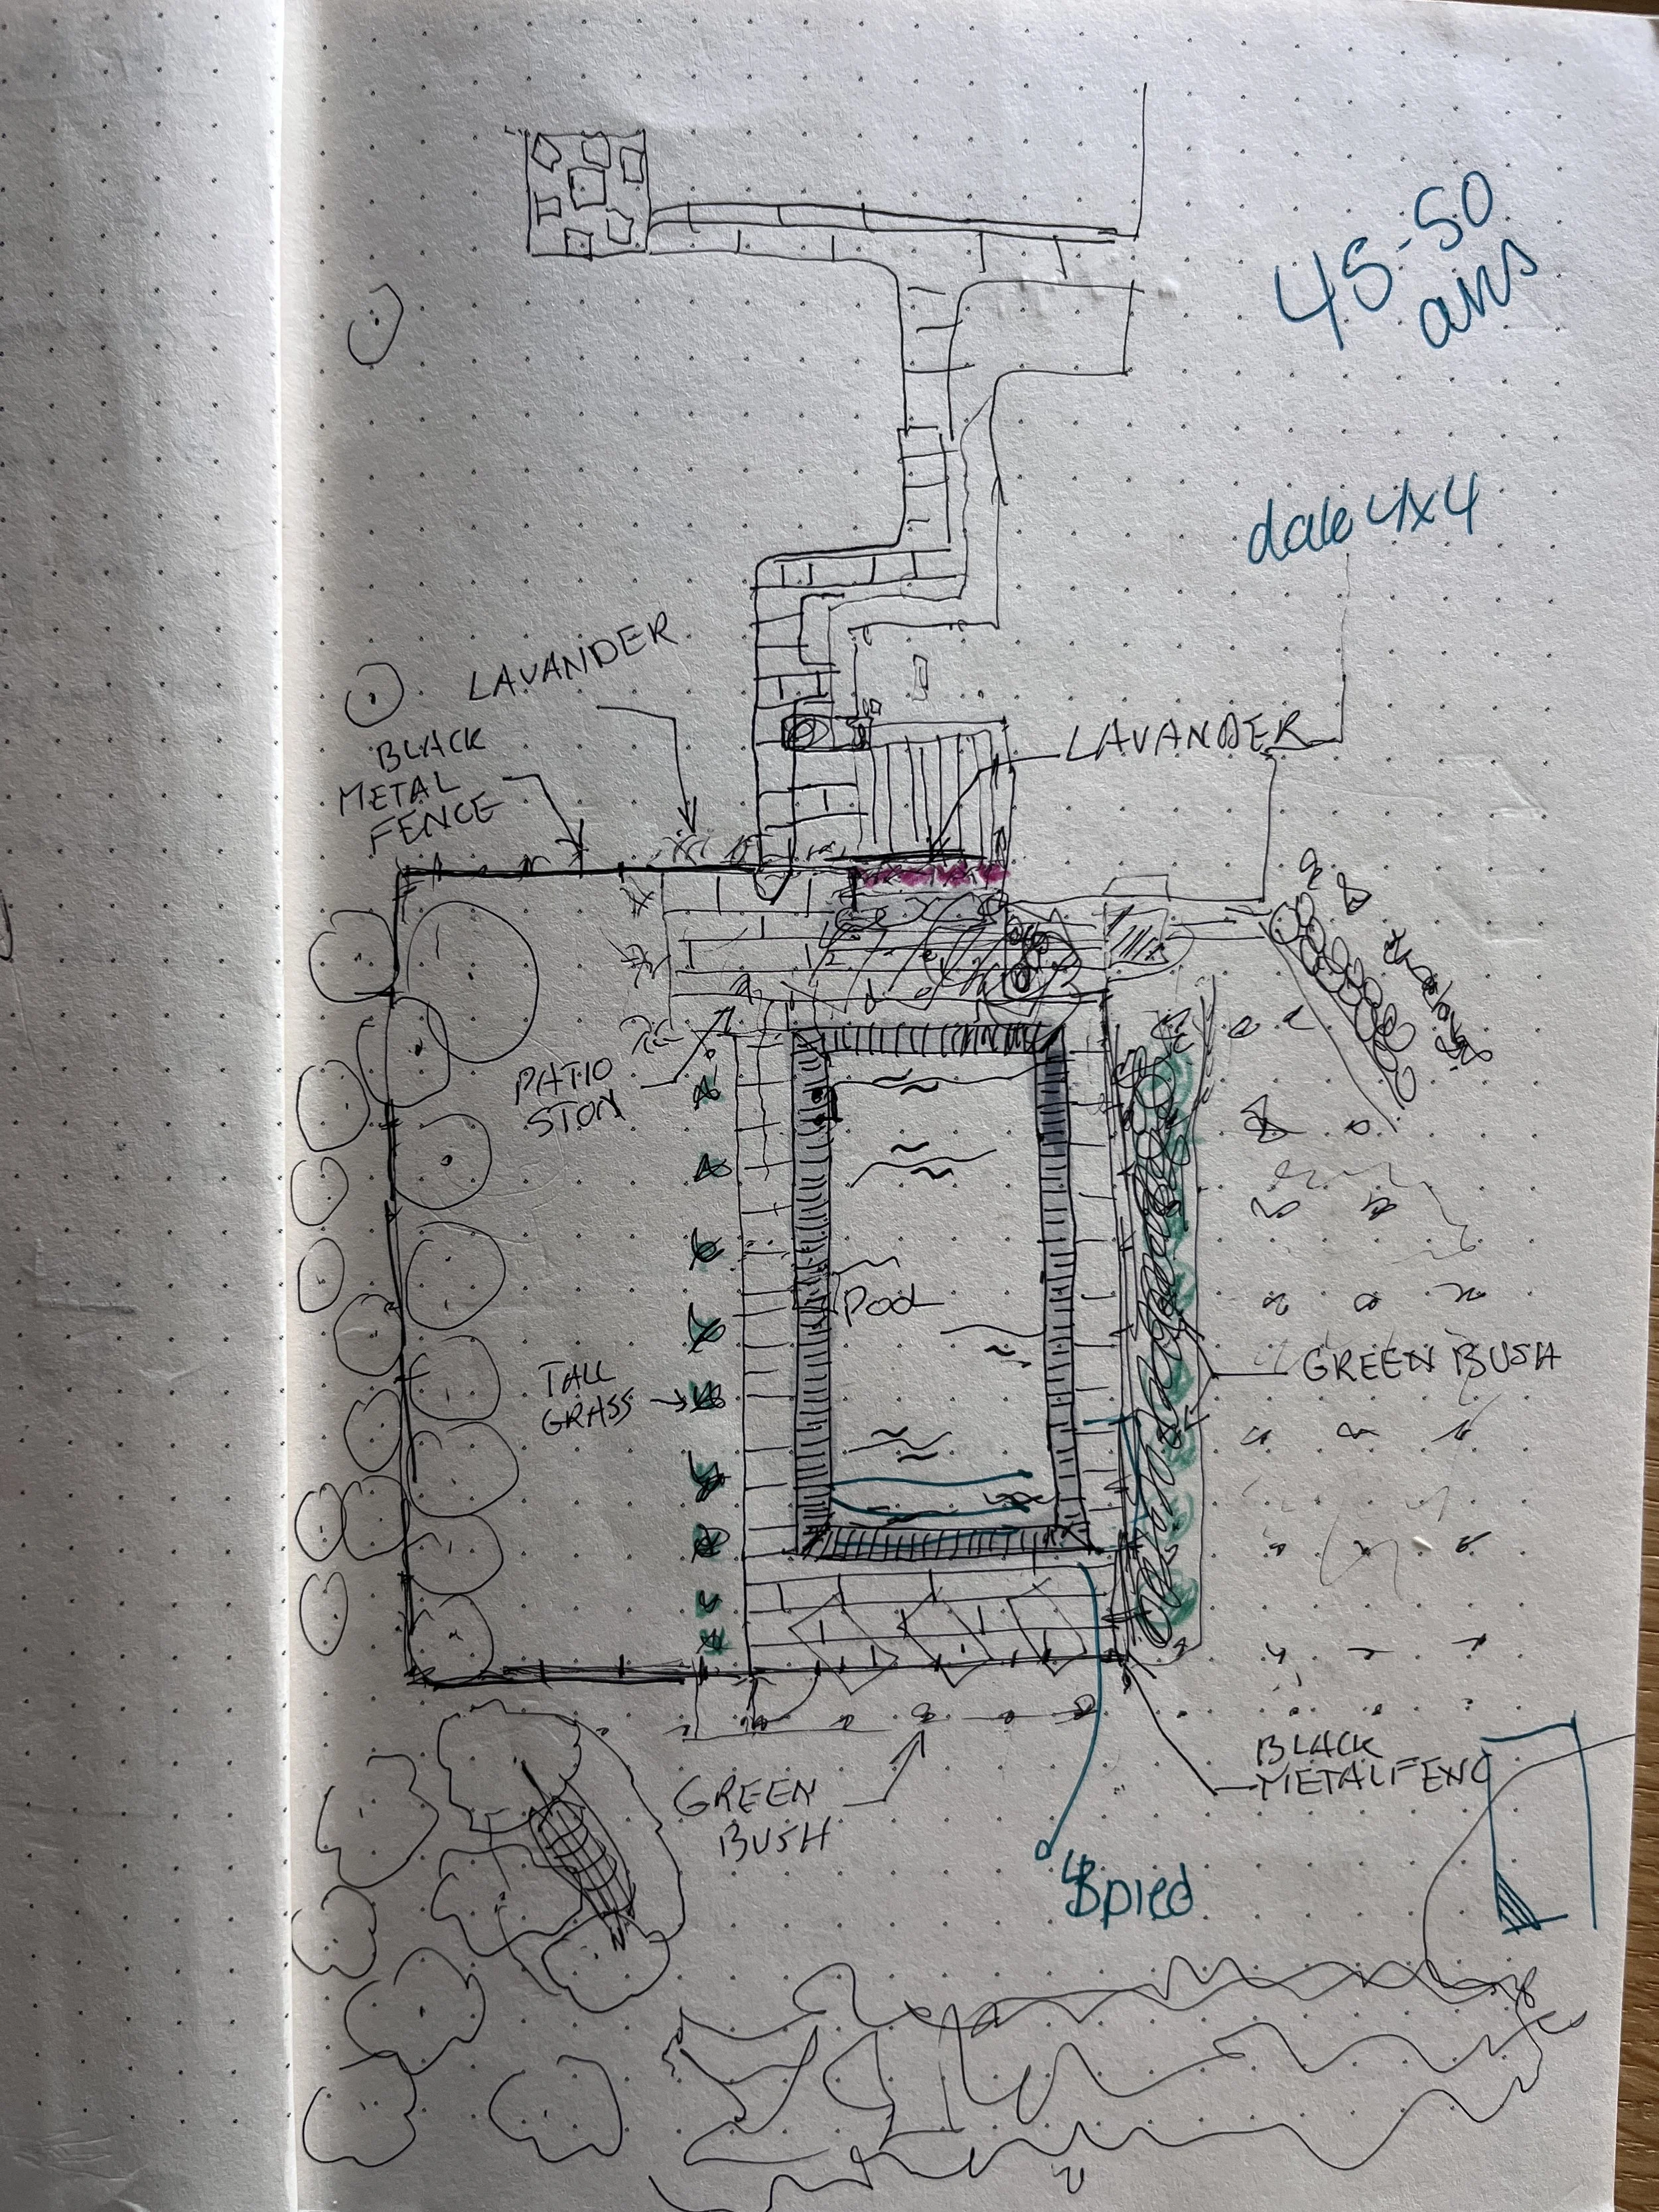 45-50
ans
dale 4x4
LAVANDER
BLACK
METAL
FENCE
LAVANDER
PATIO
STON
Pool
TALL
GRASS
GREEN BUSH
GREEN
BUSH
BLACK
METAL FENC
pied